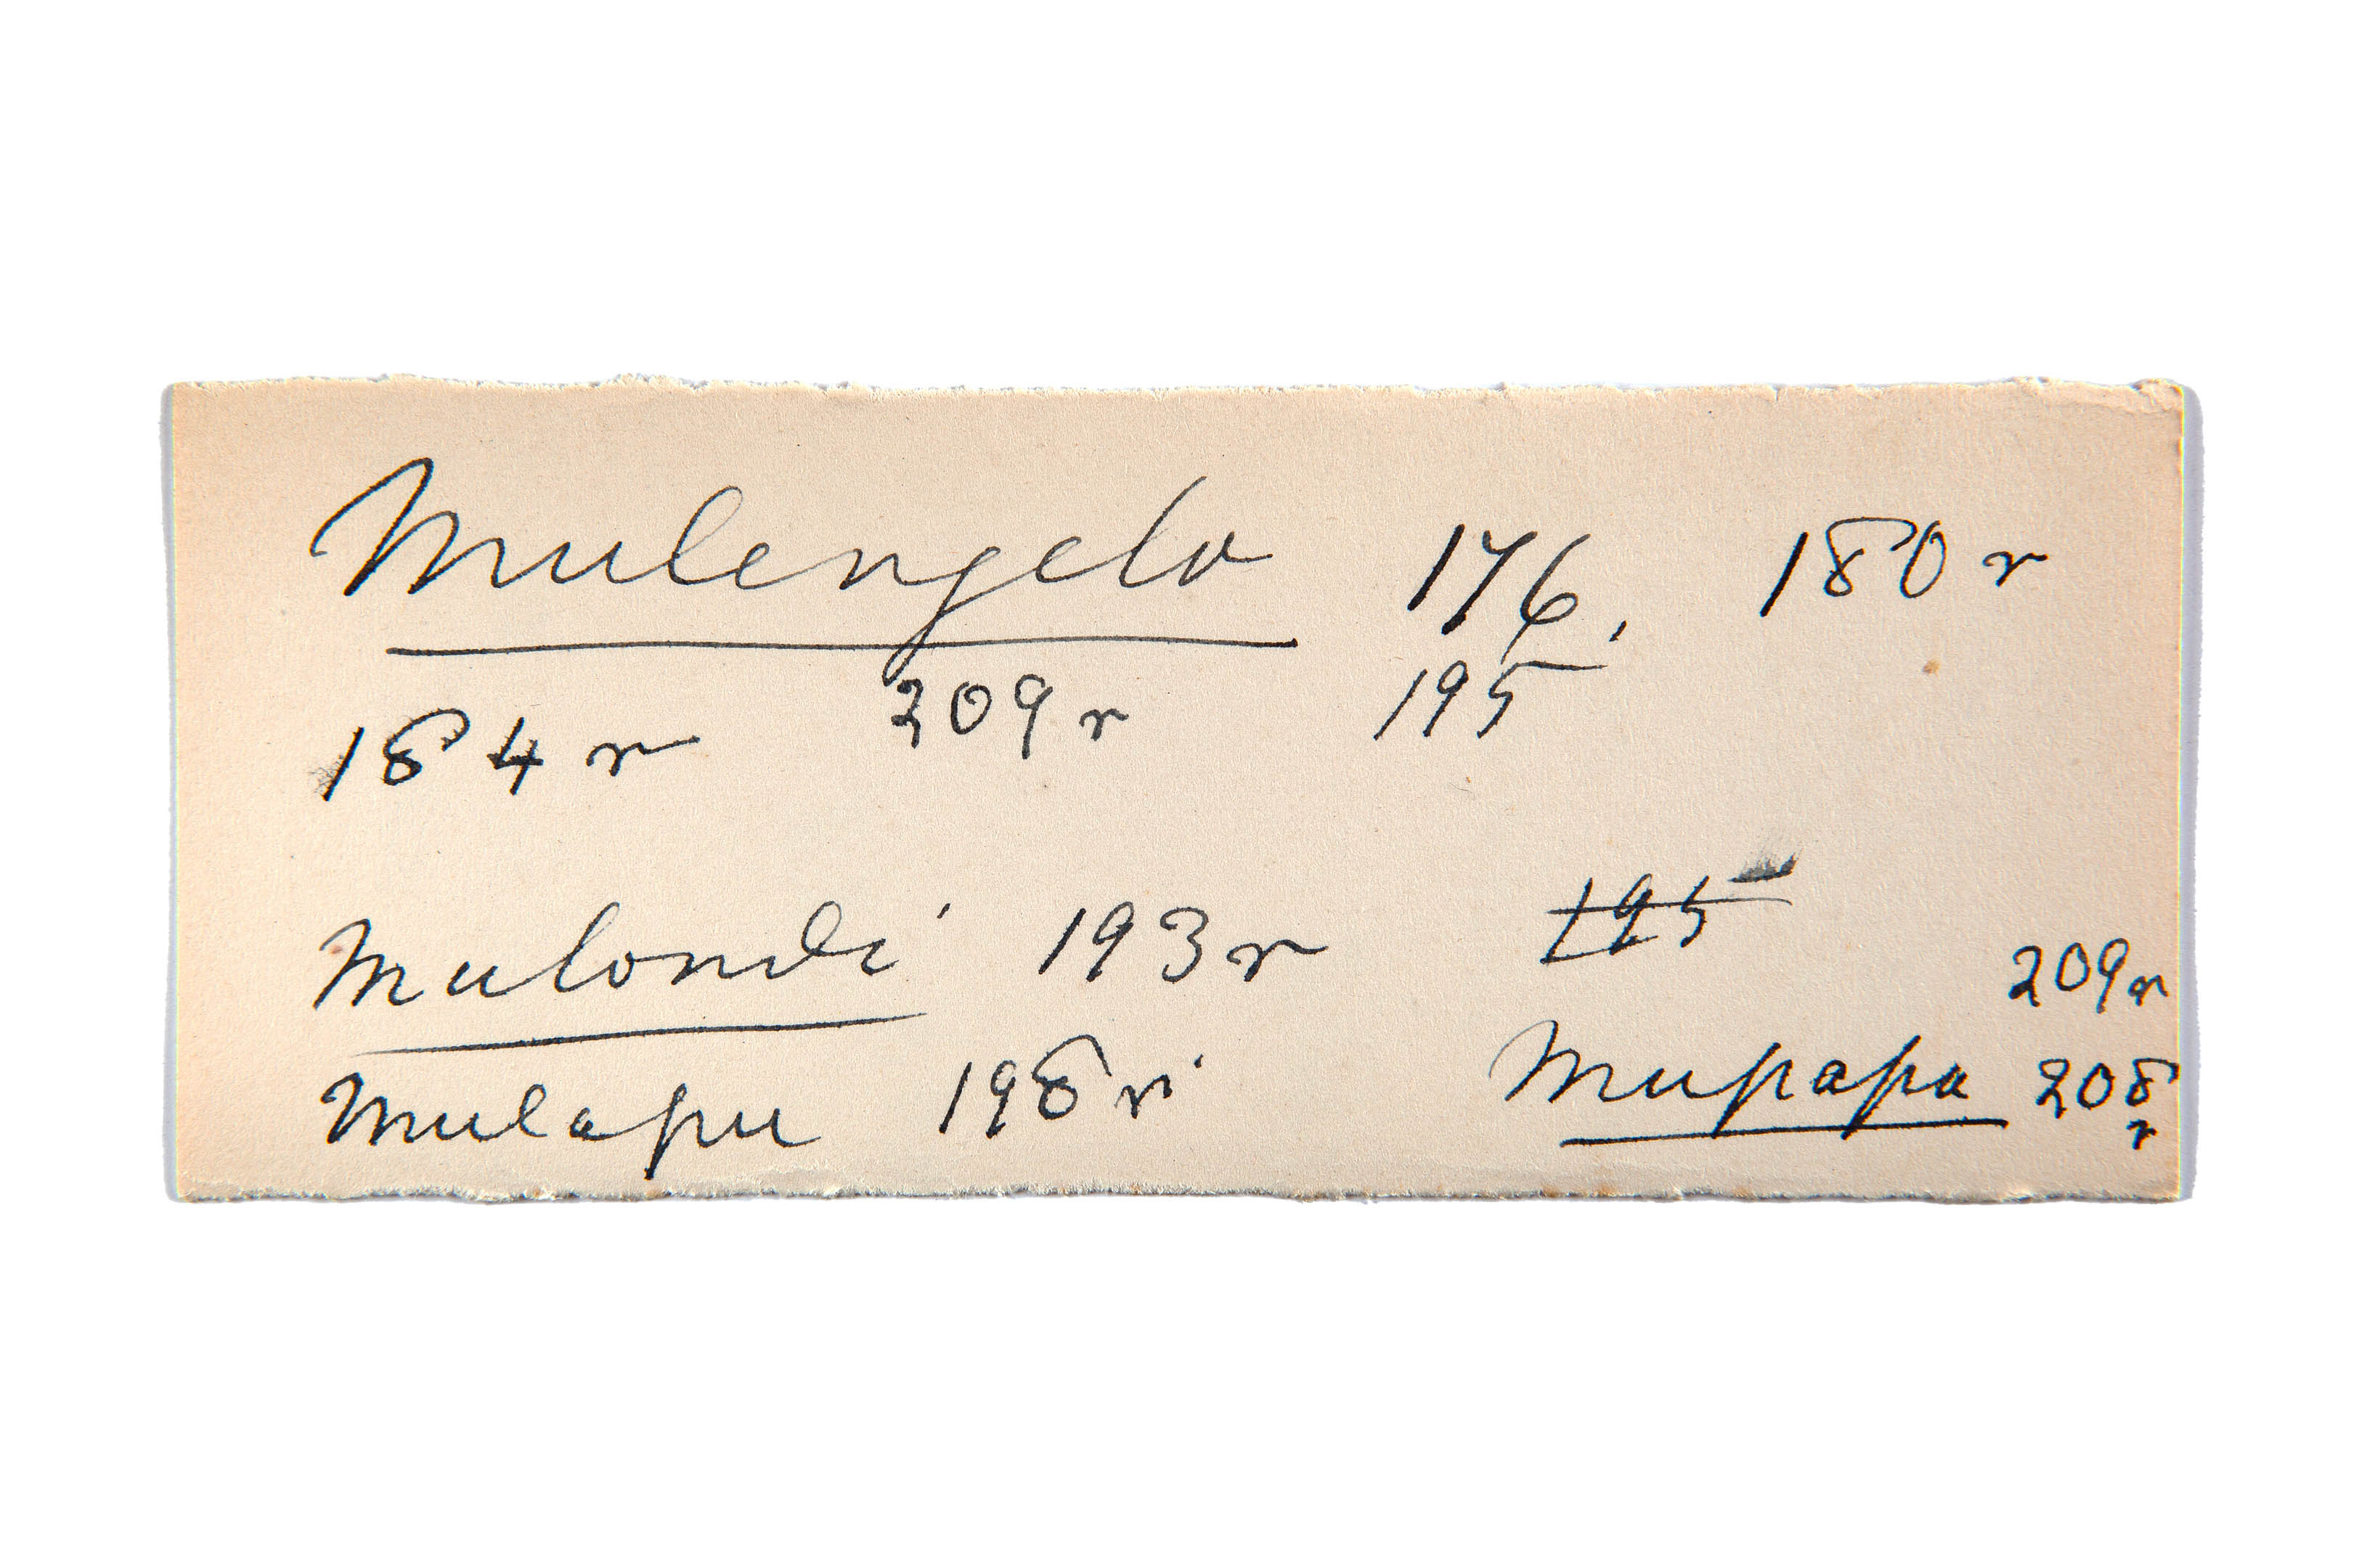 Mulengelo 176, 180 r
184 r 209 r 195
Mulondi 193 r 195
209 r
Mulapu 198 r. Mupapa 208
r